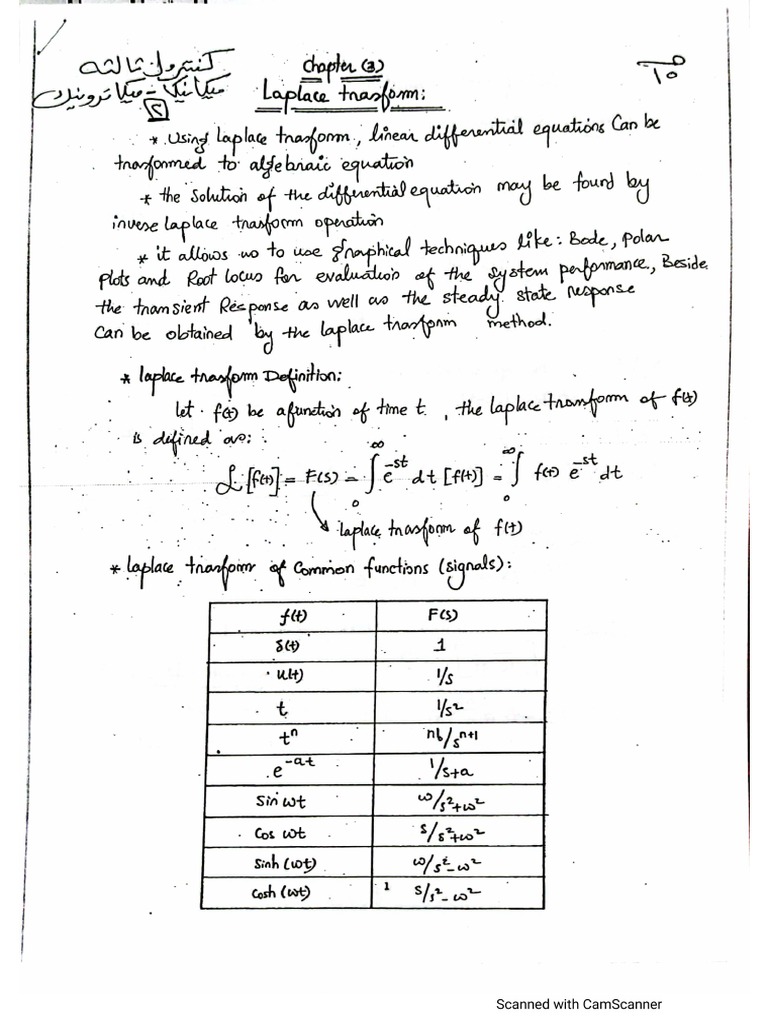 كنترول ثالثه
Chapter (3)
ميكانيكا - ميكاترونيك
٢
Laplace trasform:
* Using Laplace trasform, linear differential equations Can be
trasformed to algebraic equation
* the solution of the differential equation may be found by
inverse laplace trasform operation
* it allows us to use graphical techniques like: Bode, Polar
plots and Root locus for evaluation of the system performance, Beside
the transient Response as well as the steady state response
Can be obtained by the laplace trasform method.
* laplace trasform Definition:
let f(t) be a function of time t, the laplace transform of f(t)
is defined as:
ℒ[f(t)] = F(s) = ∫₀^∞ e^-st dt [f(t)] = ∫₀^∞ f(t) e^-st dt
laplace trasform of f(t)
* laplace trasform of Common functions (signals):
f(t) F(s)
δ(t) 1
u(t) 1/s
t 1/s²
t^n n!/s^n+1
e^-at 1/s+a
Sin ωt ω/s²+ω²
Cos ωt s/s²+ω²
Sinh (ωt) ω/s²-ω²
Cosh (ωt) s/s²-ω²
Scanned with CamScanner